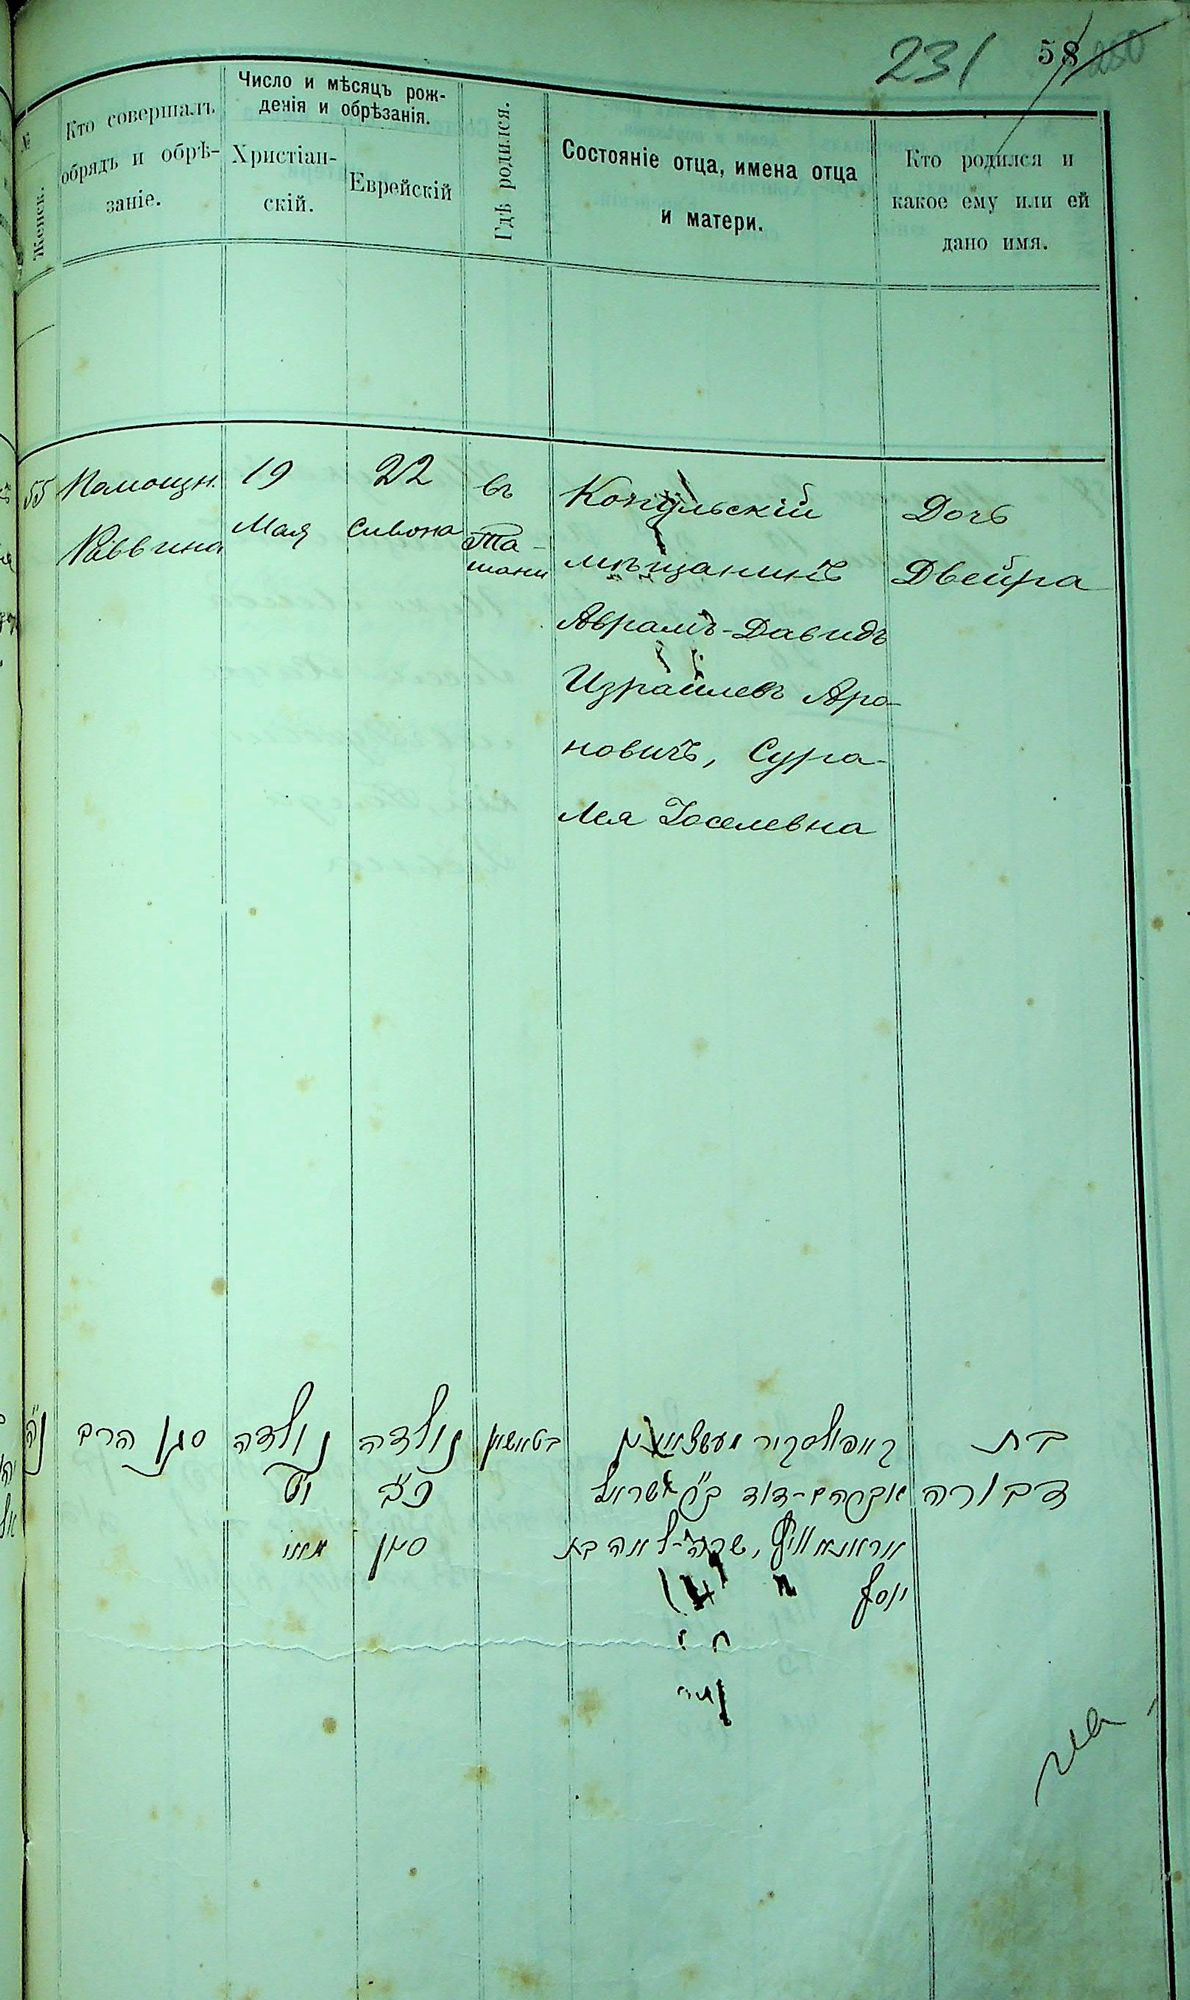 231 58 230
№
Женск.
Кто совершалъ
обрядъ и обрѣ-
заніе.
Число и мѣсяцъ рож-
денія и обрѣзанія.
Христіан-
скій.
Еврейскій
Гдѣ родился.
Состояніе отца, имена отца
и матери.
Кто родился и
какое ему или ей
дано имя.
55
Помощн.
Раввина
19
Мая
22
Сивона
въ
Та-
шани
Копыльскій
мѣщанинъ
Аврамъ-Давидъ
Израилевъ Аро-
новичъ, Сура-
Лея Іоселевна
Дочь
Двейра
נ״ה
סגן הרב
נולדה
י״ט
מאי
נולדה
כ״ב
סיון
בטאשאן
קאפולסקיר
אברהם-דוד ב״ר ישראל
אראנאוויץ, שרה-לאה בת
יוסף
בת
דבורה